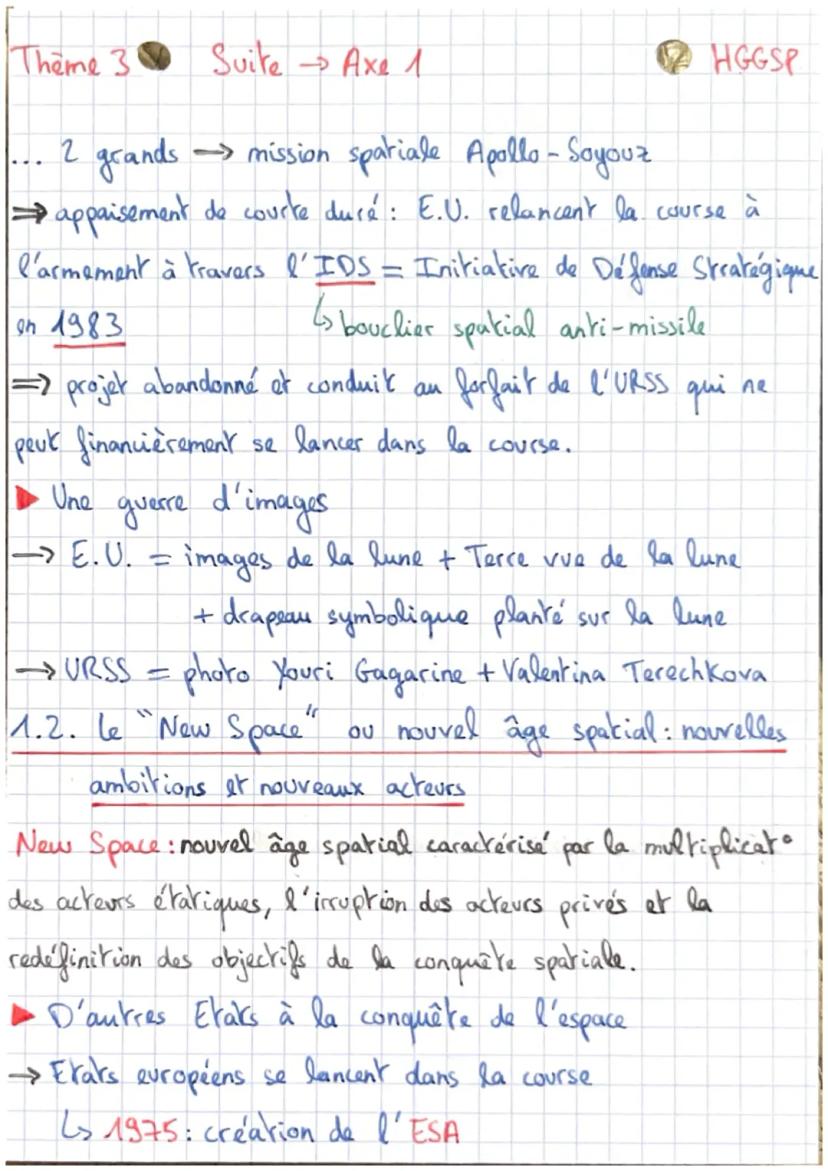 Thème 3 Suite → Axe 1 HGGSP
... 2 grands → mission spatiale Apollo-Soyouz
⇒ appaisement de courte duré : E.U. relancent la course à
l'armement à travers l'IDS = Initiative de Défense Stratégique
en 1983 ↳ bouclier spatial anti-missile
⇒ projet abandonné et conduit au forfait de l'URSS qui ne
peut financièrement se lancer dans la course.
▶ Une guerre d'images
→ E.U. = images de la lune + Terre vue de la lune
+ drapeau symbolique planté sur la lune
→ URSS = photo Youri Gagarine + Valentina Terechkova
1.2. Le "New Space" ou nouvel âge spatial : nouvelles
ambitions et nouveaux acteurs
New Space : nouvel âge spatial caractérisé par la multiplicat°
des acteurs étatiques, l'irruption des acteurs privés et la
redéfinition des objectifs de la conquête spatiale.
▶ D'autres Etats à la conquête de l'espace
→ Etats européens se lancent dans la course
↳ 1975 : création de l'ESA